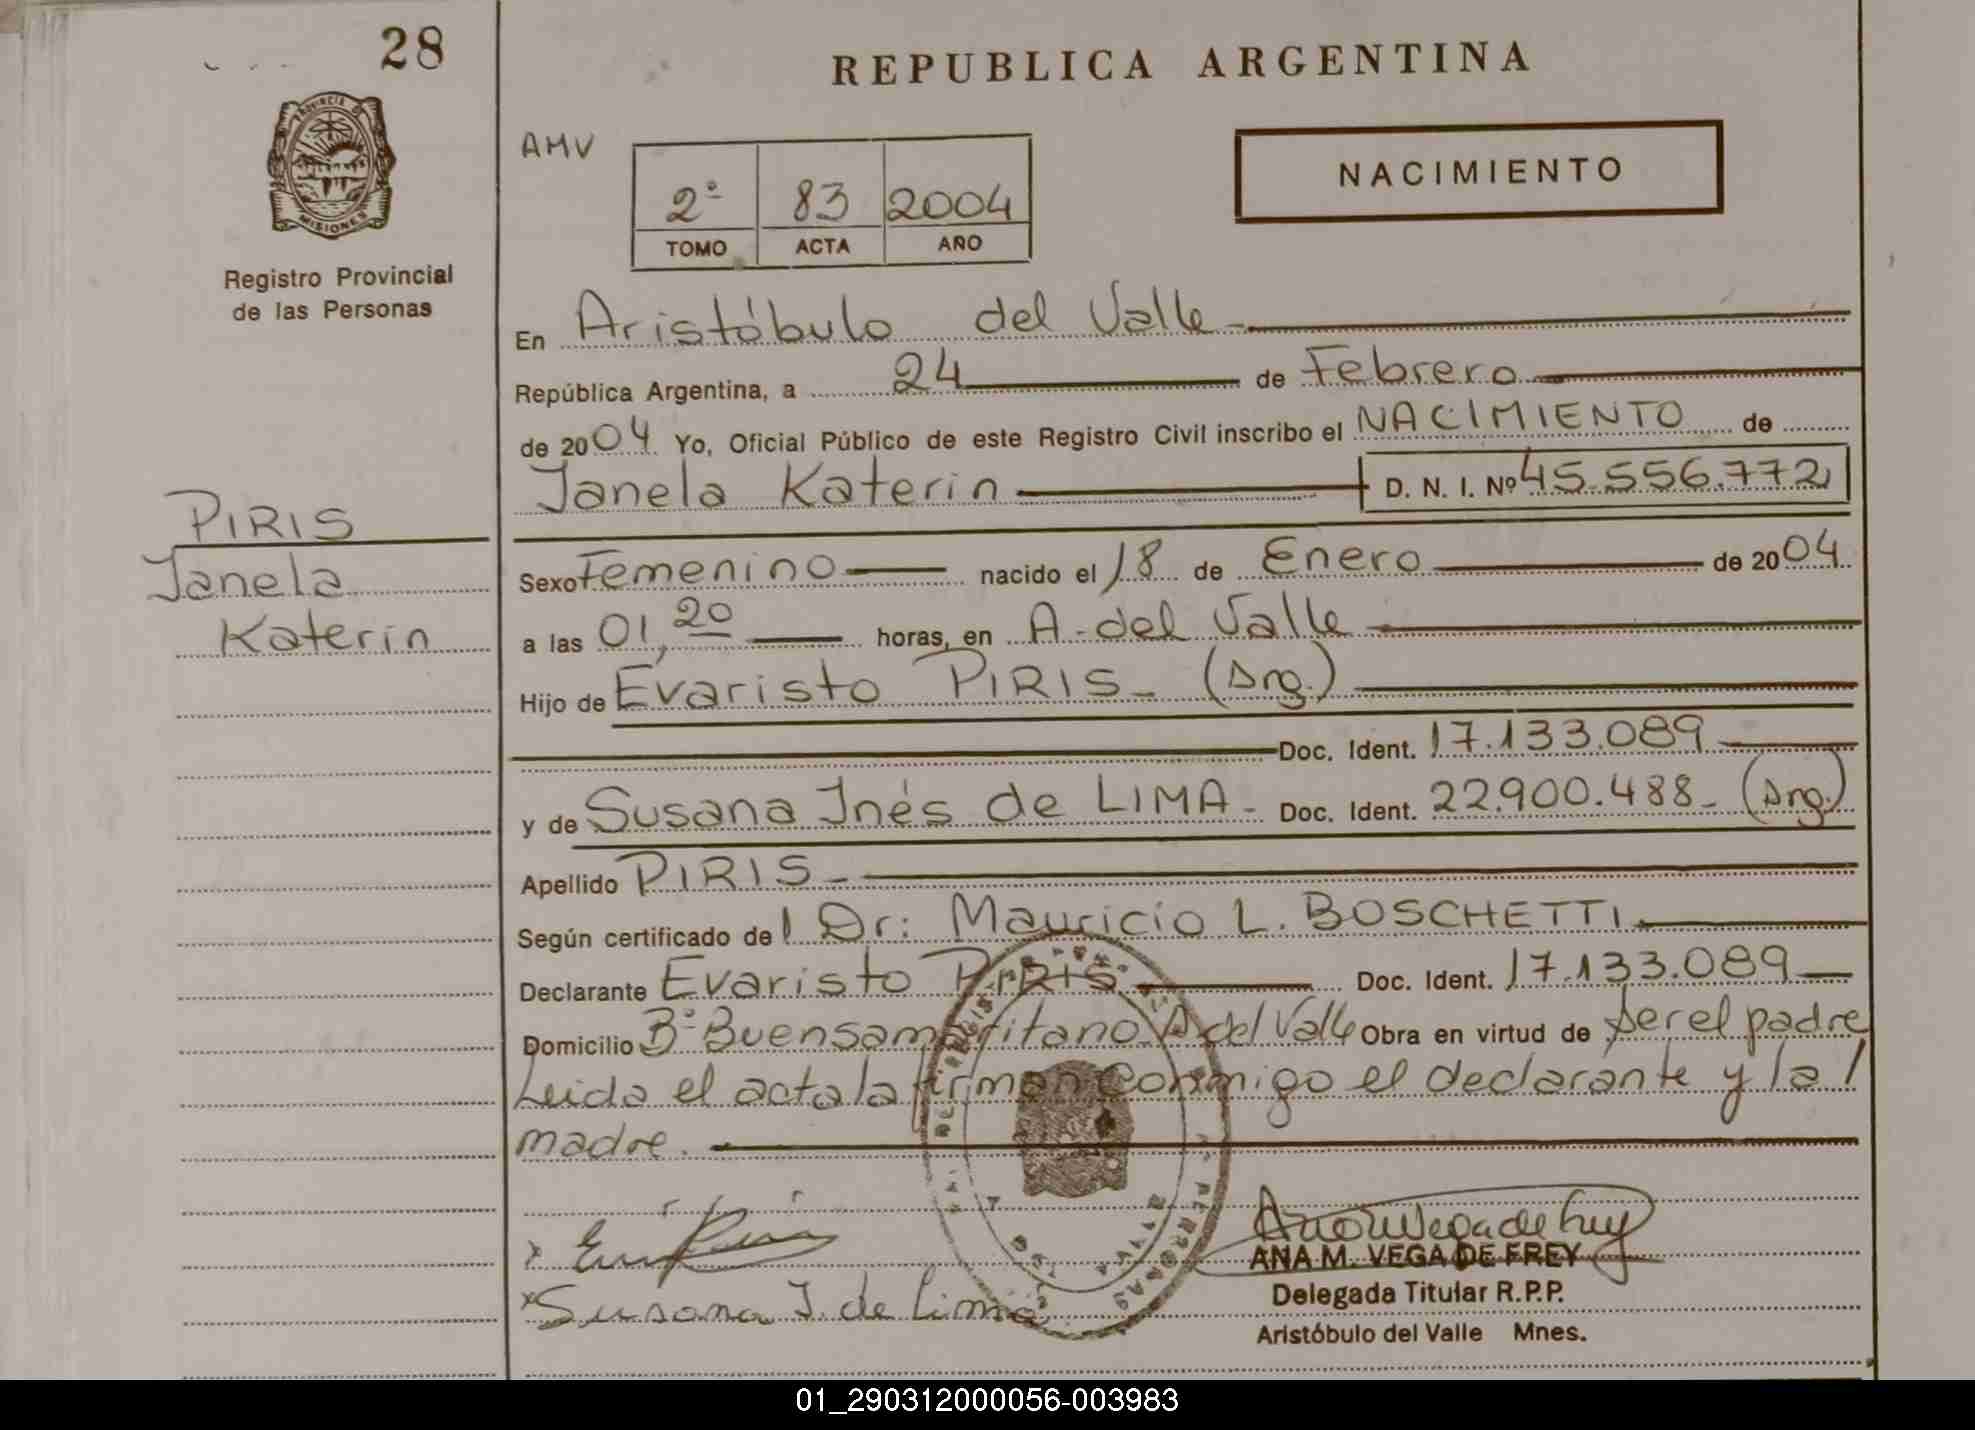 28
REPUBLICA ARGENTINA
PROVINCIA DE
MISIONES
Registro Provincial
de las Personas
AMV
NACIMIENTO
2º 83 2004
TOMO ACTA AÑO
En Aristóbulo del Valle
República Argentina, a 24 de Febrero
de 2004 Yo, Oficial Público de este Registro Civil inscribo el NACIMIENTO de
Janela Katerin D. N. I. Nº 45.556.772
PIRIS
Janela
Katerin
Sexo Femenino nacido el 18 de Enero de 2004
a las 01,20 horas, en A. del Valle
Hijo de Evaristo PIRIS (Arg.)
Doc. Ident. 17.133.089
y de Susana Inés de LIMA - Doc. Ident. 22.900.488 - (Arg.)
Apellido PIRIS
Según certificado del Dr: Mauricio L. BOSCHETTI
Declarante Evaristo PIRIS Doc. Ident. 17.133.089
Domicilio Bº Buensamaritano A. del Valle Obra en virtud de ser el padre
Leida el acta la firman conmigo el declarante y la
madre.
Susana I. de Lima
ANA M. VEGA DE FREY
Delegada Titular R.P.P.
Aristóbulo del Valle Mnes.
01_290312000056-003983